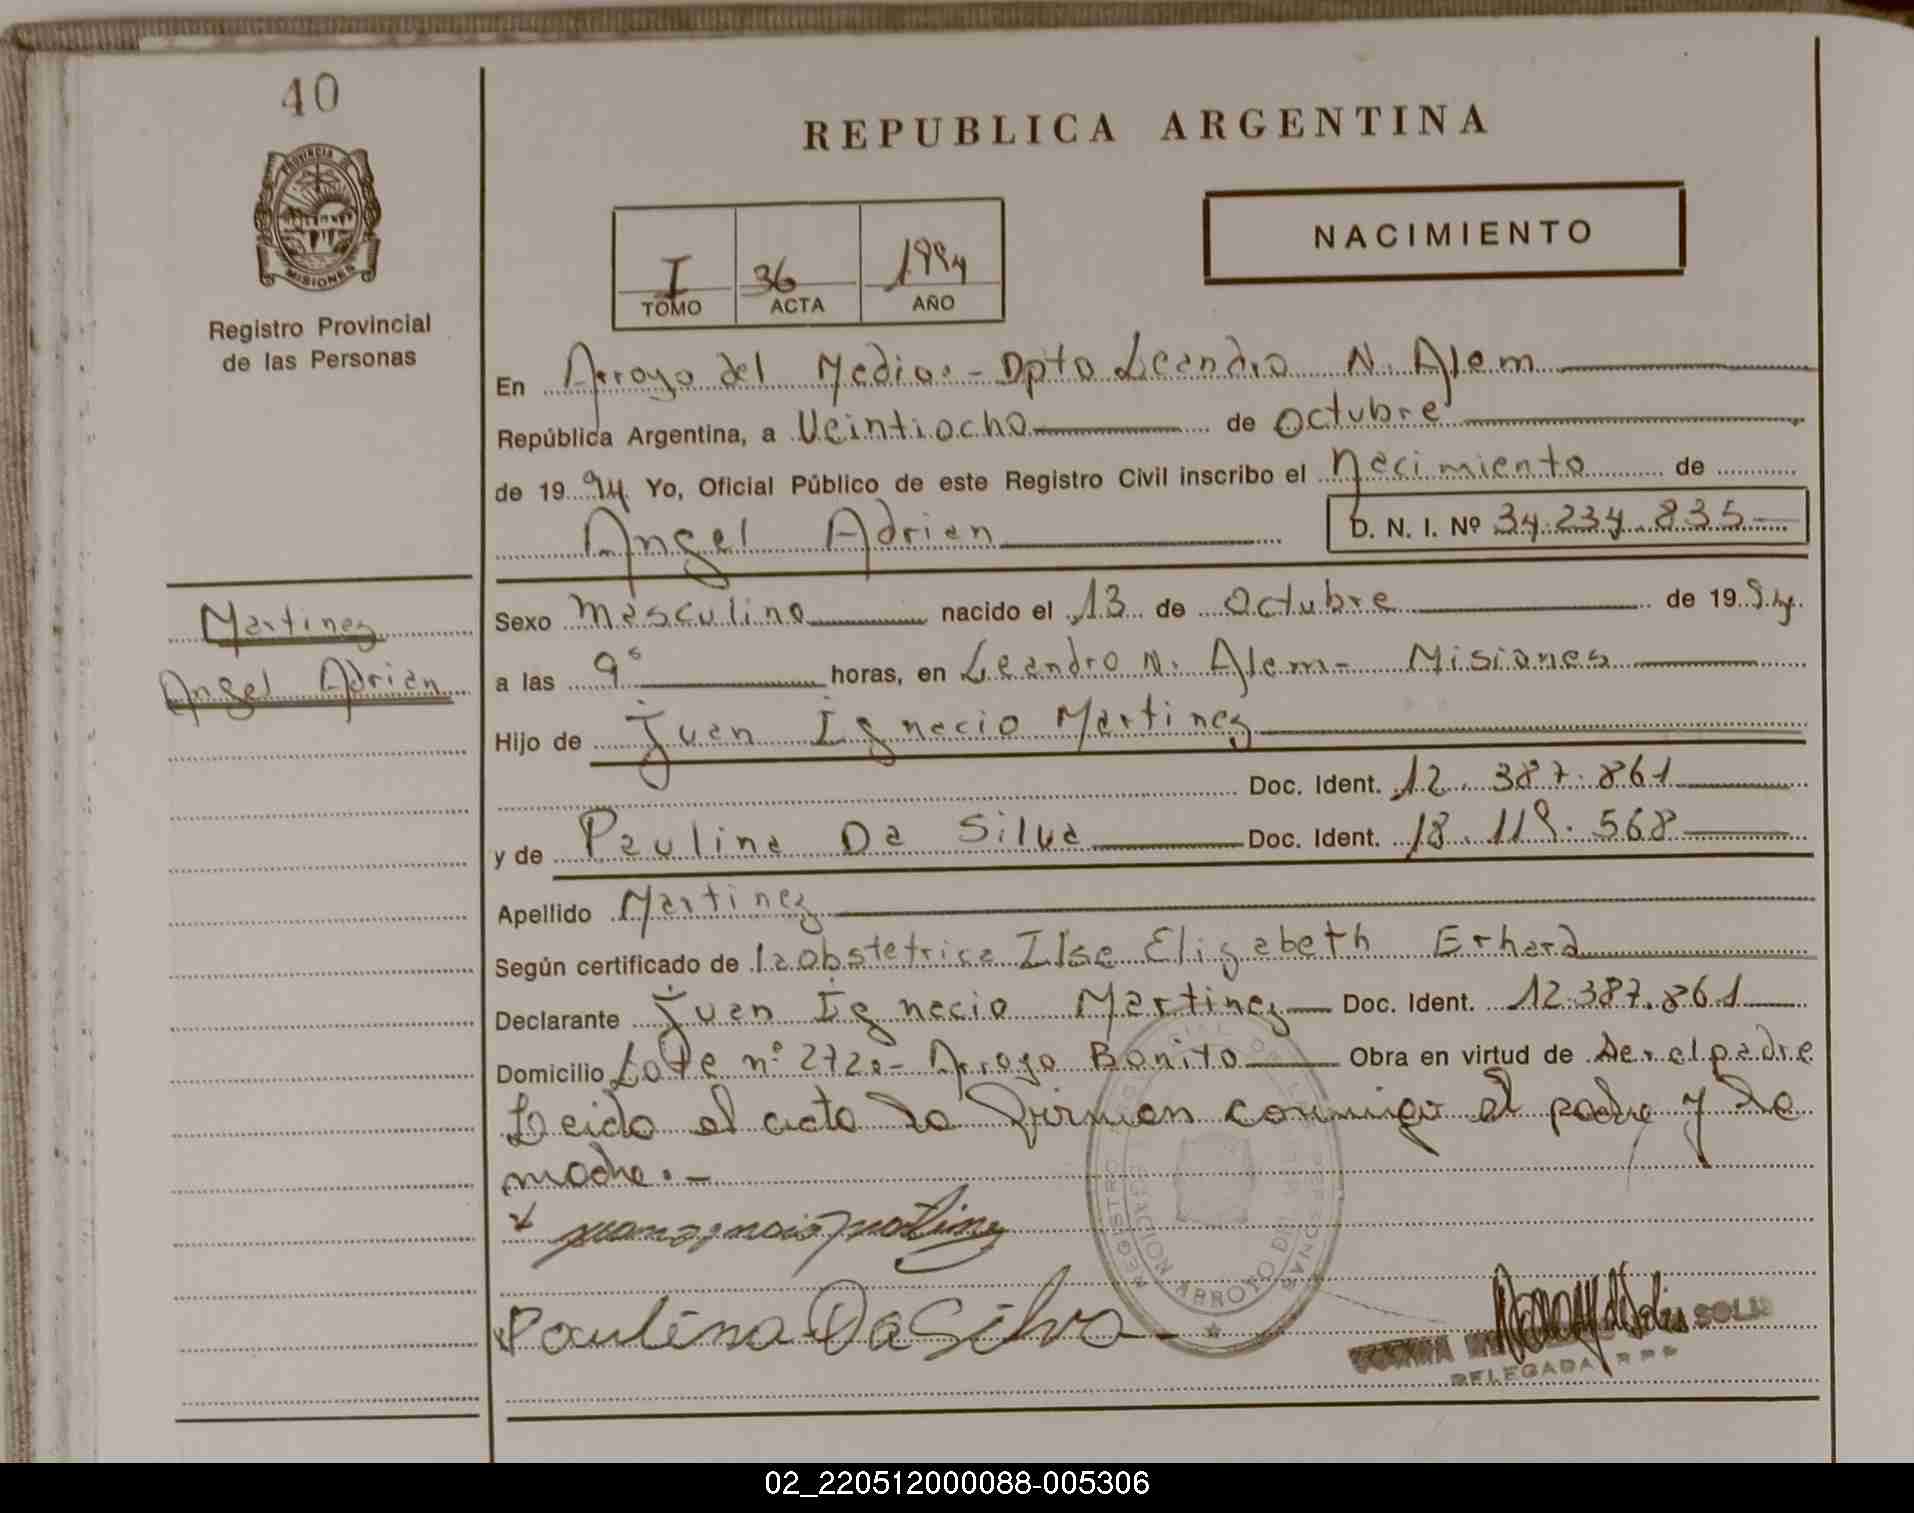 40
PROVINCIA DE
MISIONES
Registro Provincial
de las Personas
REPUBLICA ARGENTINA
NACIMIENTO
I 36 1994
TOMO ACTA AÑO
En Arroyo del Medio.- Dpto Leandro N. Alem
República Argentina, a Veintiocho de octubre
de 19 94. Yo, Oficial Público de este Registro Civil inscribo el nacimiento de
Angel Adrian D. N. I. Nº 34.234.835
Martinez
Angel Adrian
Sexo masculino nacido el 13 de octubre de 19 94.
a las 9 horas, en Leandro N. Alem- Misiones
Hijo de Juan Ignacio Martinez
Doc. Ident. 12.387.861
y de Paulina Da Silva Doc. Ident. 18.119.568
Apellido Martinez
Según certificado de la obstetrica Ilse Elizabeth Erhard
Declarante Juan Ignacio Martinez Doc. Ident. 12.387.861
Domicilio Lote nº 272.- Arroyo Bonito Obra en virtud de Ser el padre
Leido el acta la firman conmigo el padre y la
madre.-
Paulina Da Silva
SOLIS
DELEGADA R P P
02_220512000088-005306